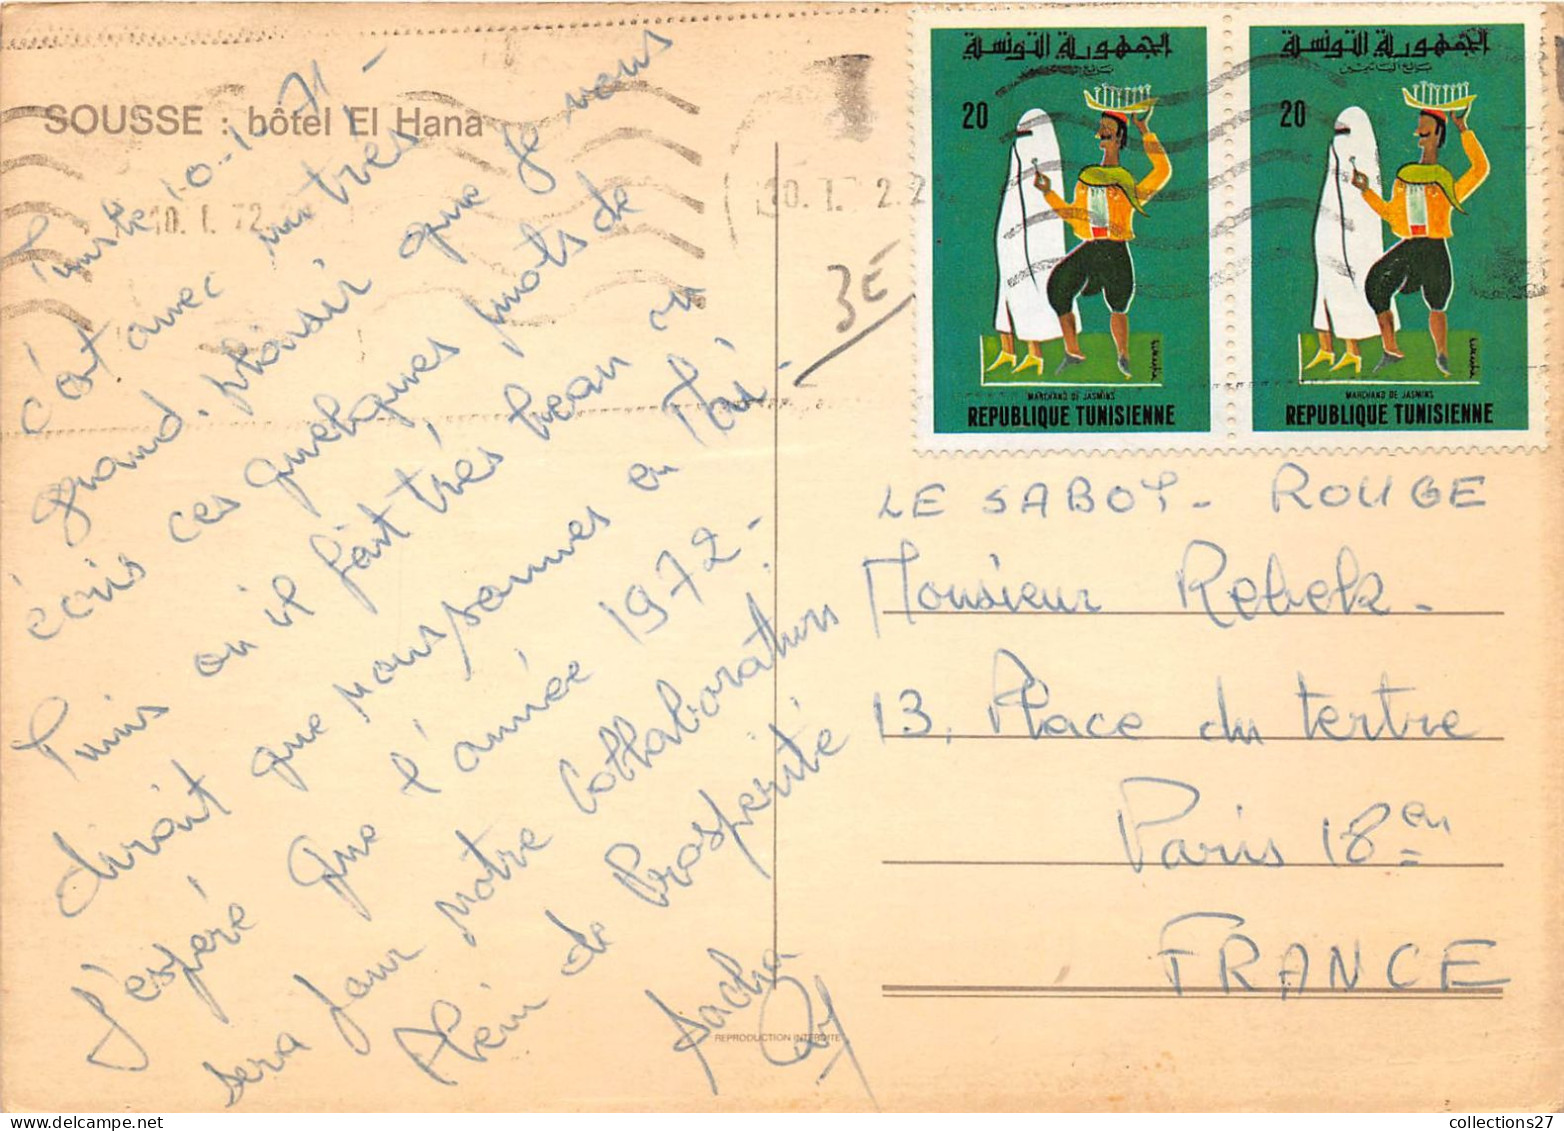 SOUSSE : hôtel El Hana
Tunis le 10-1-71 -
c'est avec un très
grand. plaisir que je vous
écris ces quelques mots de
Tunis ou il fait très beau on
dirait que nous sommes en Mai -
J'espéré que l'année 1972 -
sera pour notre Collaborations
Plein de Prosperité
Sacha
10.1.72
3E
الجمهورية التونسية
20
MARCHAND DE JASMINS
REPUBLIQUE TUNISIENNE
الجمهورية التونسية
20
MARCHAND DE JASMINS
REPUBLIQUE TUNISIENNE
LE SABOT - ROUGE
Monsieur Rebek -
13, Place du tertre
Paris 18en
FRANCE
REPRODUCTION INTERDITE
collections27